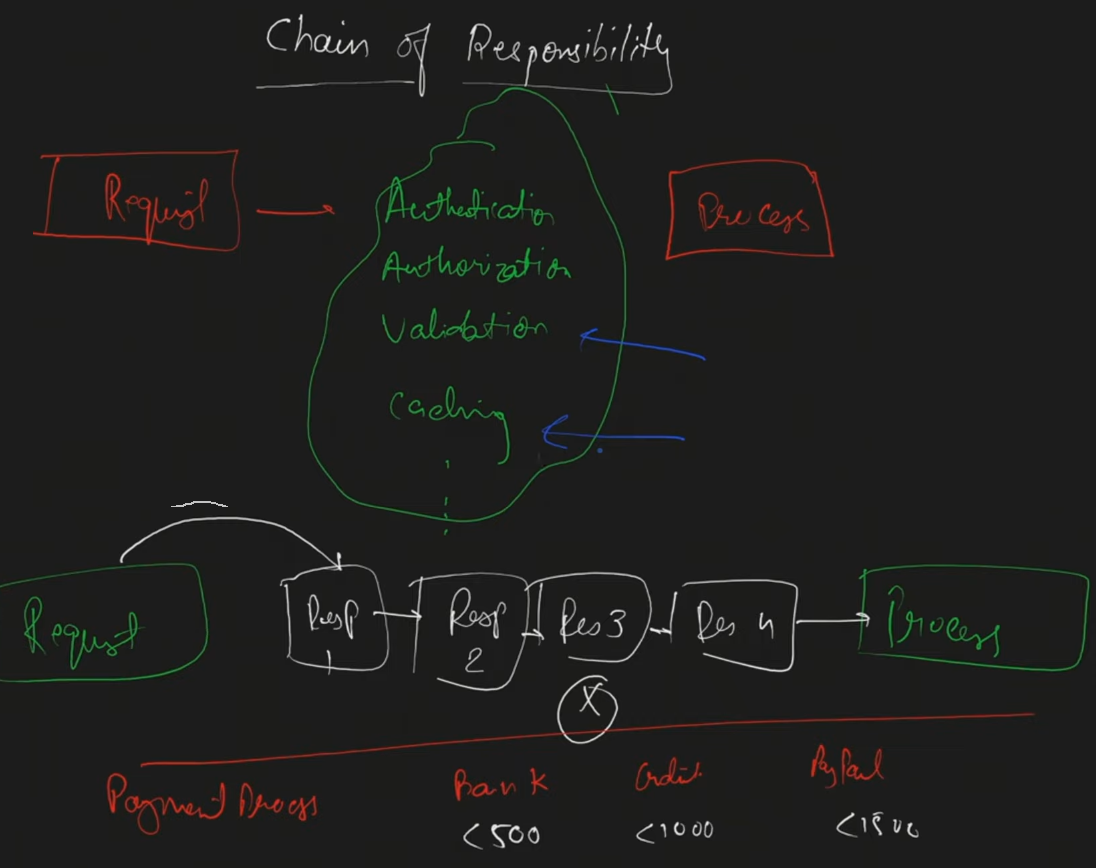 Chain of Responsibility
Request
Authentication
Process
Authorization
Validation
Caching
Request
Resp 1
Resp 2
Res 3
Res 4
Process
X
Payment Process
Bank
Credit
PayPal
<500
<1000
<1500